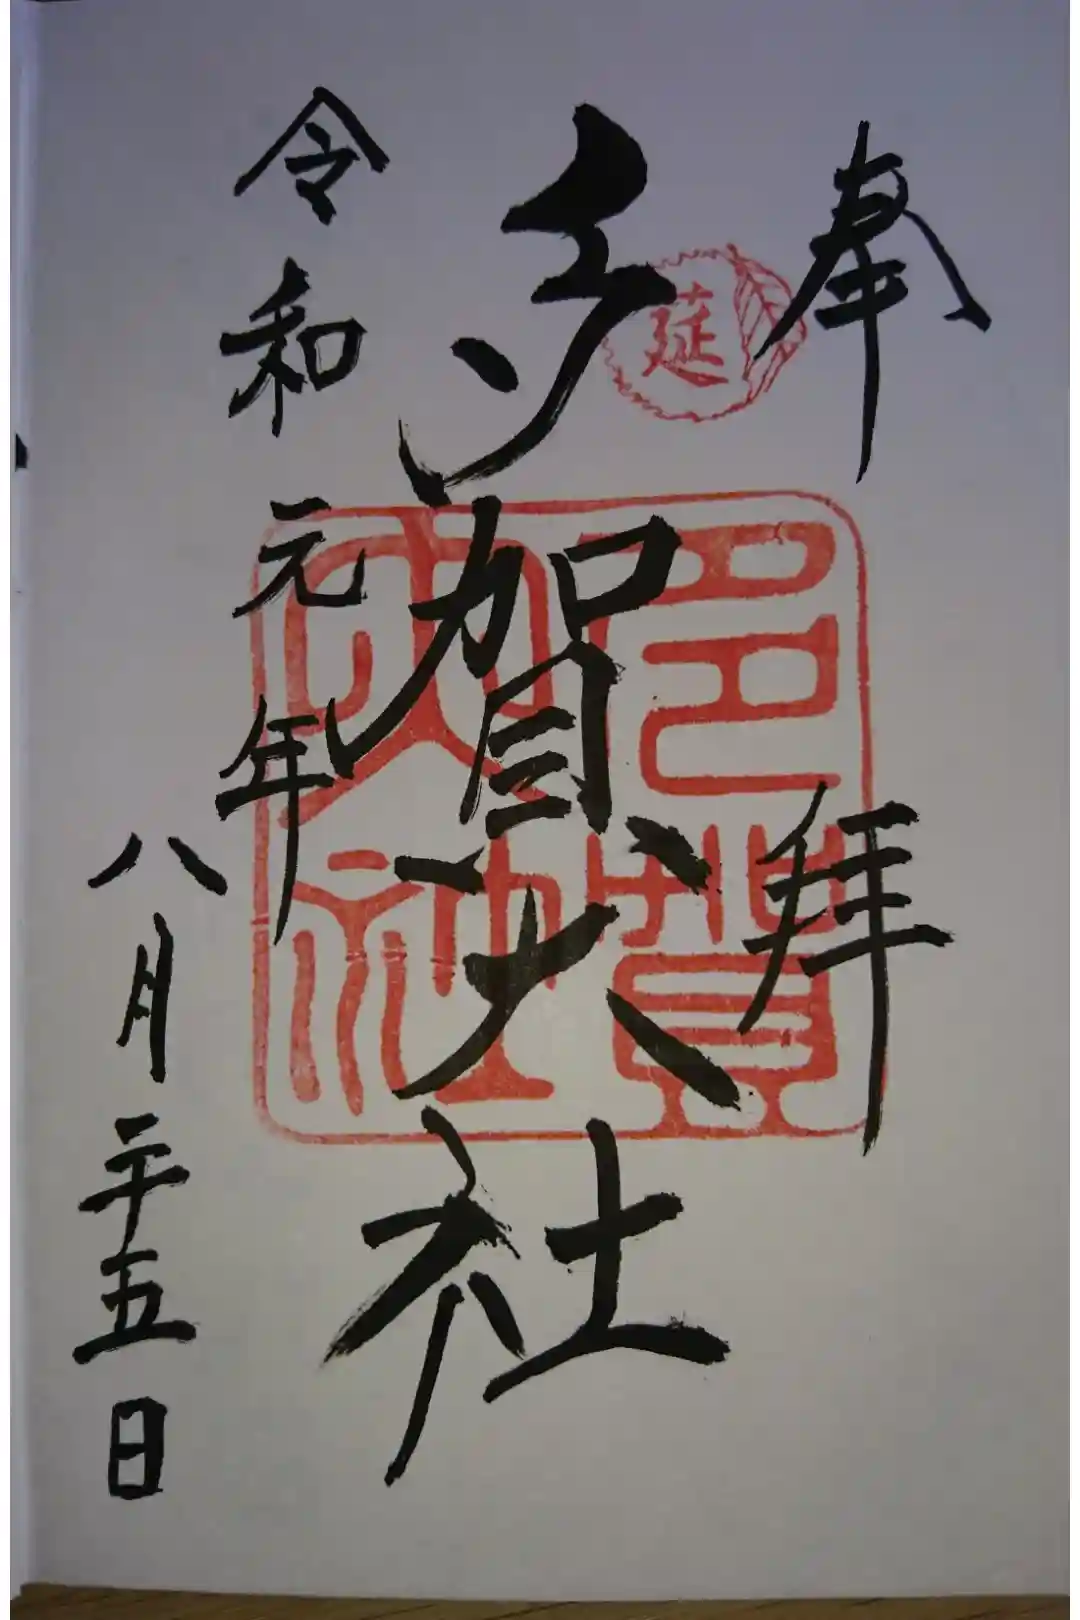 奉拜
延
多賀大社
多賀大社
令和元年
八月二十五日